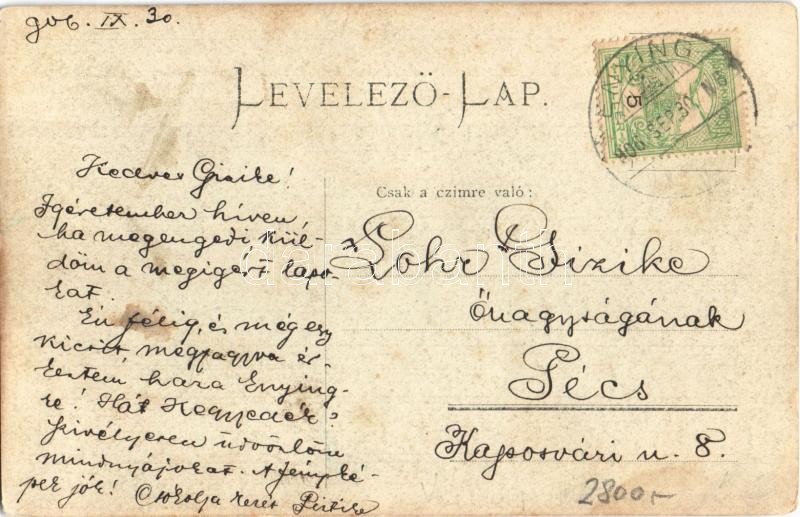 906. IX. 30.
LEVELEZÖ-LAP.
Kedves Gizike!
Igéretemhez híven,
ha megengedi, kül-
döm a megígért lapo-
kat.
Én félig, és még egy
kicsit megfagyva ér-
keztem haza Enying-
re! Hát Kegyedék?
Szívélyesen üdvözlöm
mindnyájokat. A fényké-
pek jók! Csókolja kezét
Csak a czímre való:
Lohr Gizike
Őnagyságának
Pécs
Kaposvári u. 8.
906 SEP 30
5
2800,-